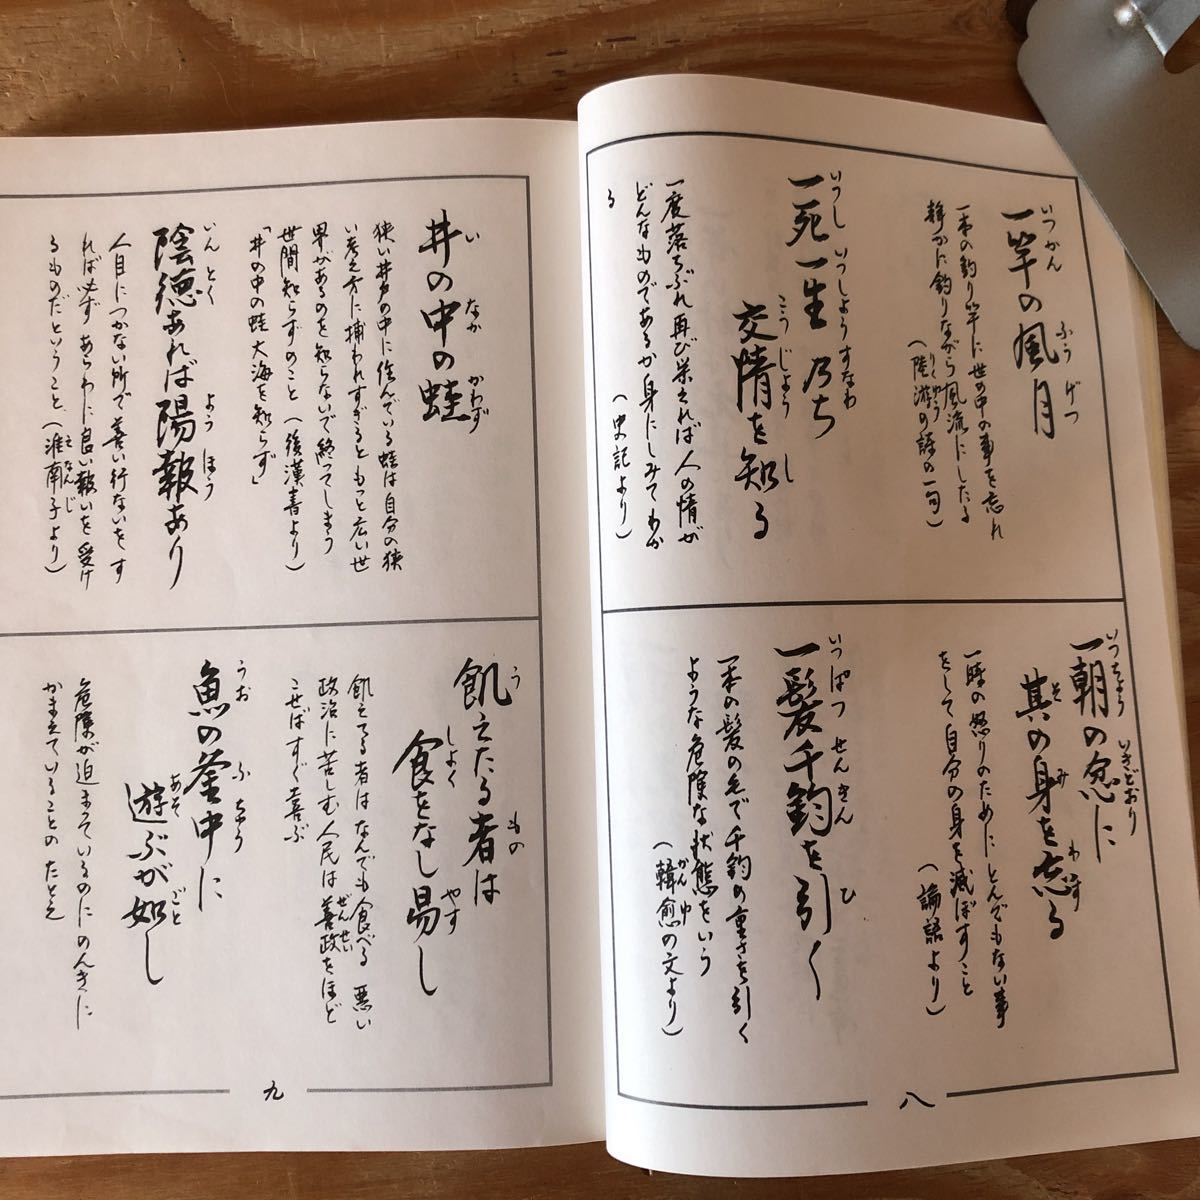 一竿の風月
いつかん ふうげつ
一本の釣り竿に世の中の事を忘れ
静かに釣りながら風流にしたる
(陸游の詩の一句)
りくゆう
一死一生乃ち
いつし いつしようすなわ
交情を知る
こうじよう し
一度落ちぶれ再び栄えれば人の情が
どんなものであるか身にしみてわか
る
(史記より)
一朝の忿に
いつちよう いきどおり
其の身を忘る
そ み わす
一時の怒りのためにとんでもない事
をして自分の身を滅ぼすこと
(論語より)
一髪千鈞を引く
いつぱつ せんきん ひ
一本の髪の毛で千鈞の重さを引く
ような危険な状態をいう
(韓愈の文より)
かんゆ
八
井の中の蛙
い なか かわず
狭い井戸の中に住んでいる蛙は自分の狭
い考え方に捕われすぎるともっと広い世
界があるのを知らないで終ってしまう
世間知らずのこと(後漢書より)
「井の中の蛙大海を知らず」
陰徳あれば陽報あり
いんとく ようほう
人目につかない所で善い行ないをす
れば必ずあらわに良い報いを受け
るものだということ(淮南子より)
えなんじ
飢えたる者は
う もの
食をなし易し
しよく やす
飢えてる者はなんでも食べる 悪い
政治に苦しむ人民は善政をほど
ぜんせい
こせばすぐ喜ぶ
魚の釜中に
うお ふちゆう
遊ぶが如し
あそ ごと
危険が迫まっているのにのんきに
かまえていることのたとえ
九